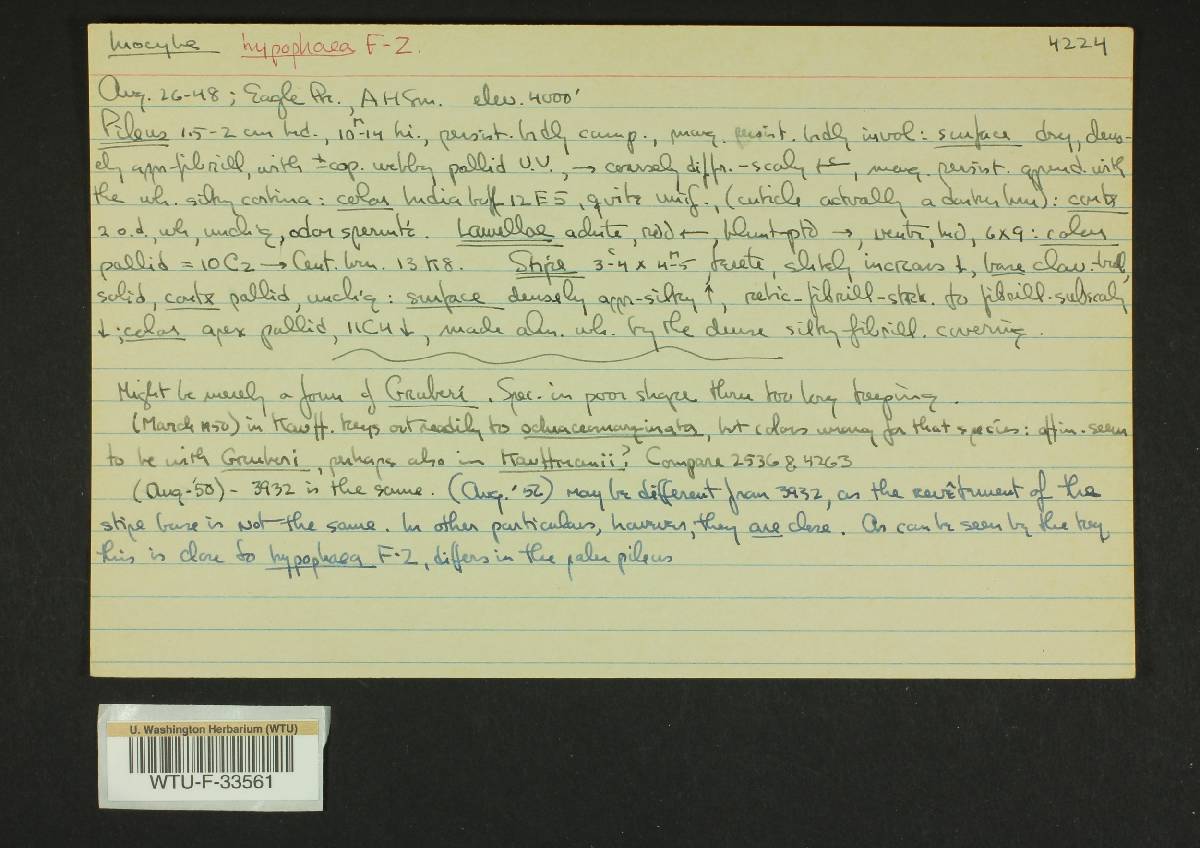 Inocybe hypophaea F-Z. 4224
Aug. 26-48; Eagle Pk., AHSm. elev. 4000'
Pileus 1.5-2 cm brd., 10-14 hi., persist. brdly camp., marg. persist. brdly invol: surface dry, dens-
ely appr-fibrill, with ± cop. webby pallid U.V., → coarsely diffr.-scaly, marg. persist. append. with
the wh. silky cortina: color India buff 12 E 5, quite unif., (cuticle actually a darker brn): contx
2 o.d., wh, unchg, odor spermtc. Lamellae adnate, rdd ←, blunt-ptd →, ventr, brd, 6x9: color
pallid = 10 C2 → Cent. brn. 13 K8. Stipe 3-4 x 4-5, terete, slitely increas ↓, base clav.-bulb,
solid, contx pallid, unchg: surface densely appr-silky ↑, retic-fibrill-streak. to fibrill-subscaly
↓; color apex pallid, 11C4 ↓, made alm. wh. by the dense silky-fibrill. covering.
Might be merely a form of Gruberi. Spec. in poor shape thru too long keeping.
(March 1950) in Kauff. keys out readily to ochraceomarginata, but colors wrong for that species: affin. seem
to be with Gruberi, perhaps also in Kauffmanii? Compare 2536 & 4263
(Aug-'50) - 3932 is the same. (Aug. '52) May be different from 3932, as the revêtment of the
stipe base is not the same. In other particulars, however, they are close. As can be seen by the key
this is close to hypophaea F-Z, differs in the paler pileus
U. Washington Herbarium (WTU)
WTU-F-33561